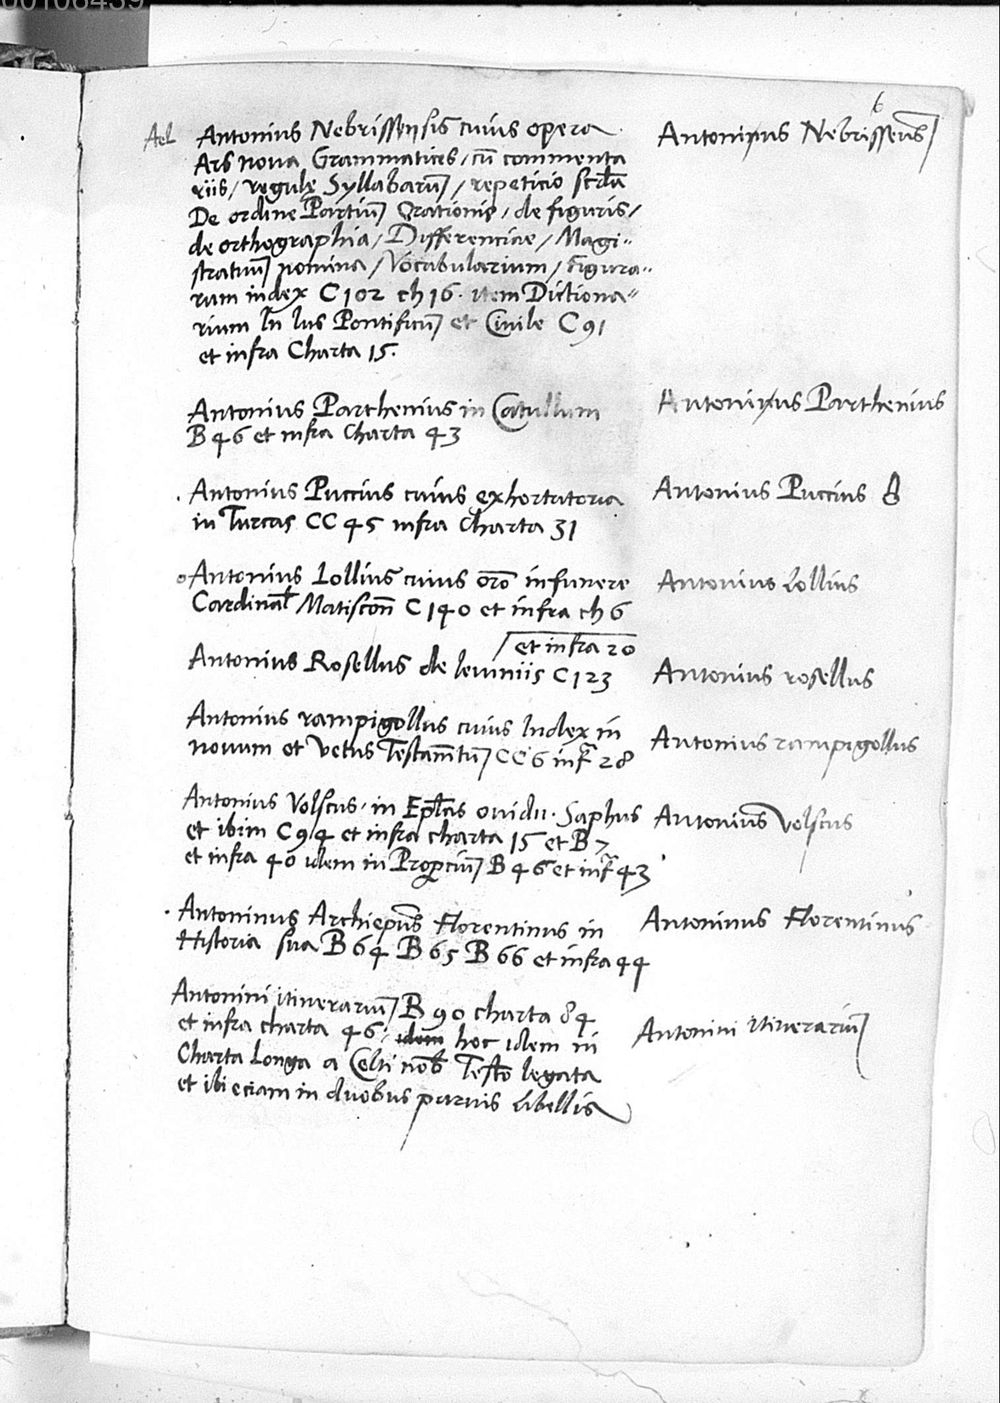 00106439
6
Ael Antonius Nebrissensis cuius opera
Ars noua Grammatices / cū commenta
riis / regulę Syllabarū / repeticio scďa
De ordine Partiū Orationis / de figuris /
de orthographia / Differenciae / Magi„
stratuū nomina / Vocabularium / Figura„
rum index C 102 ch 16. item Dictiona„
rium In Ius Pontificiū et Ciuile C 91
et infra Charta 15.
Antonius Nebrissēsis
Antonius Parthenius in Catullum
B 46 et infra Charta 43
Antonius Parthenius
Antonius Puccius cuius exhortatoria
in Turcas CC 45 infra Charta 31
Antonius Puccius
Antonius Lollius cuius orō in funere
Cardinal Matiscoñ C 140 et infra ch 6
Antonius Lollius
et infra 20
Antonius Rosellus de Ieiuniis C 123
Antonius rosellus
Antonius rampigollus cuius Index in
nouum et vetus Testam̄tū CC 6 infr̄ 28
Antonius rampigollus
Antonius Volscus in Epłas ouidii. Saphus
et ibim C 94 et infra charta 15 et B 7
et infra 40 idem in Proꝑciū B 46 et infr̄ 43
Antonius volscus
Antoninus Archiepūs Florentinus in
Historia sua B 64 B 65 B 66 et infra 44
Antoninus Florentinus
Antonini itinerariū B 90 charta 84
et infra charta 46. idem hoc idem in
Charta Longa a Celti nob̄ Testo legata
et ibi eciam in duobus paruis Libellis
Antonini itinerariū